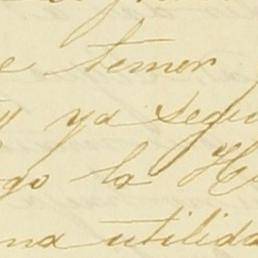 e temor
y ya segu
go la H
na utilida